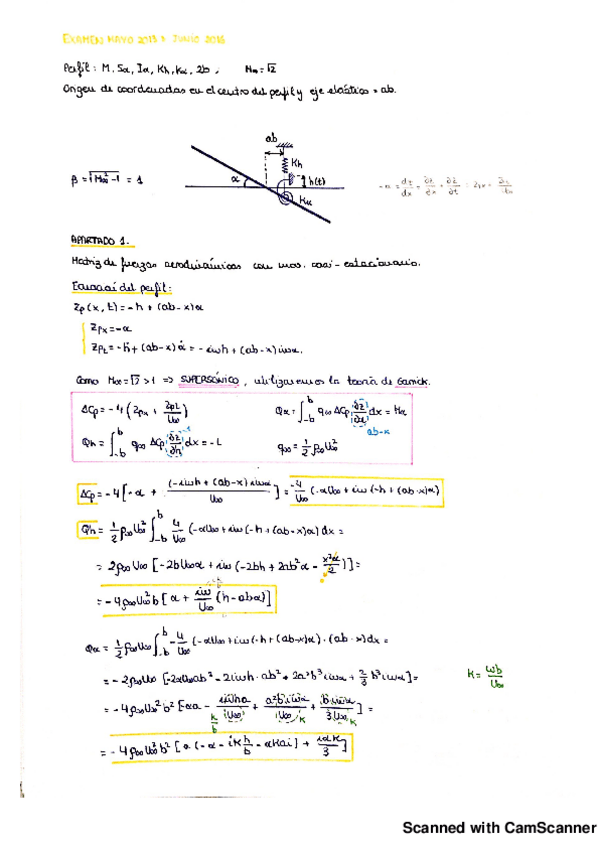 EXAMEN MAYO 2013 > JUNIO 2016
Perfil: M, Sα, Iα, Kh, Kα, 2b, M∞ = √2
Origen de coordenadas en el centro del perfil y eje elástico = ab.
ab
Kh
β = √(M∞² - 1) = 1
α
h(t)
Kα
-α = dz/dx = ∂z/∂x + ∂z/∂t
APARTADO 1.
Matriz de fuerzas aerodinámicas con mov. casi-estacionario.
Ecuación del perfil:
Zp(x,t) = -h + (ab-x)α
Zpx = -α
Zpt = -ḣ + (ab-x)α̇ = -iωh + (ab-x)iωα.
Como M∞ = √2 > 1 => SUPERSÓNICO, utilizaremos la teoría de Garrick.
ΔCp = -4(Zpx + Zpt/U∞)
Qα = ∫_{-b}^{b} q∞ ΔCp (∂z/∂α) dx = Mα
ab-x
Qh = ∫_{-b}^{b} q∞ ΔCp (∂z/∂h) dx = -L
-1
q∞ = 1/2 ρ∞ U∞²
ΔCp = -4[-α + (-iωh + (ab-x)iωα)/U∞] = -4/U∞ (-αU∞ + iω(-h + (ab-x)α)
Qh = 1/2 ρ∞U∞² ∫_{-b}^{b} 4/U∞ (-αU∞ + iω(-h + (ab-x)α) dx =
= 2ρ∞U∞ [-2bU∞α + iω(-2bh + 2ab²α - x²α/2)] =
= -4ρ∞U∞²b [α + iω/U∞ (h - abα)]
Qα = 1/2 ρ∞U∞² ∫_{-b}^{b} -4/U∞ (-αU∞ + iω(-h + (ab-x)α) · (ab-x) dx =
= -2ρ∞U∞ [-2αU∞ab² - 2iωh·ab² + 2a²b³iωα + 2/3 b³iωα] =
K = ωb/U∞
= -4ρ∞U∞²b² [-αa - iωha/U∞ + a²b iωα/U∞ + b iωα/3U∞] =
k/b
k
k
= -4ρ∞U∞²b² [a(-α - ik h/b - αKai) + iαK/3]
Scanned with CamScanner